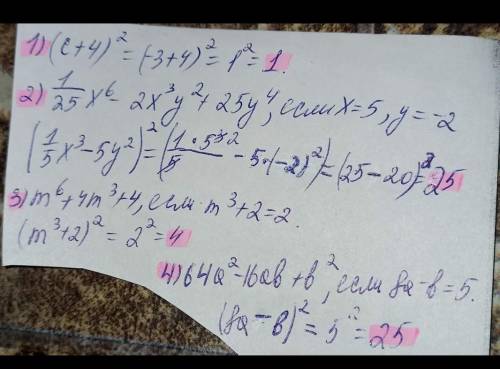 1) (c+4)² = (-3+4)² = 1² = 1.
2) 1/25 x⁶ - 2x³y² + 25y⁴, если x=5, y=-2
(1/5 x³ - 5y²)² = (1·5³²/5 - 5·(-2)²)² = (25-20)² = 25
3) m⁶+4m³+4, если m³+2=2.
(m³+2)² = 2² = 4
4) 64a²-16ab+b², если 8a-b=5.
(8a-b)² = 5² = 25